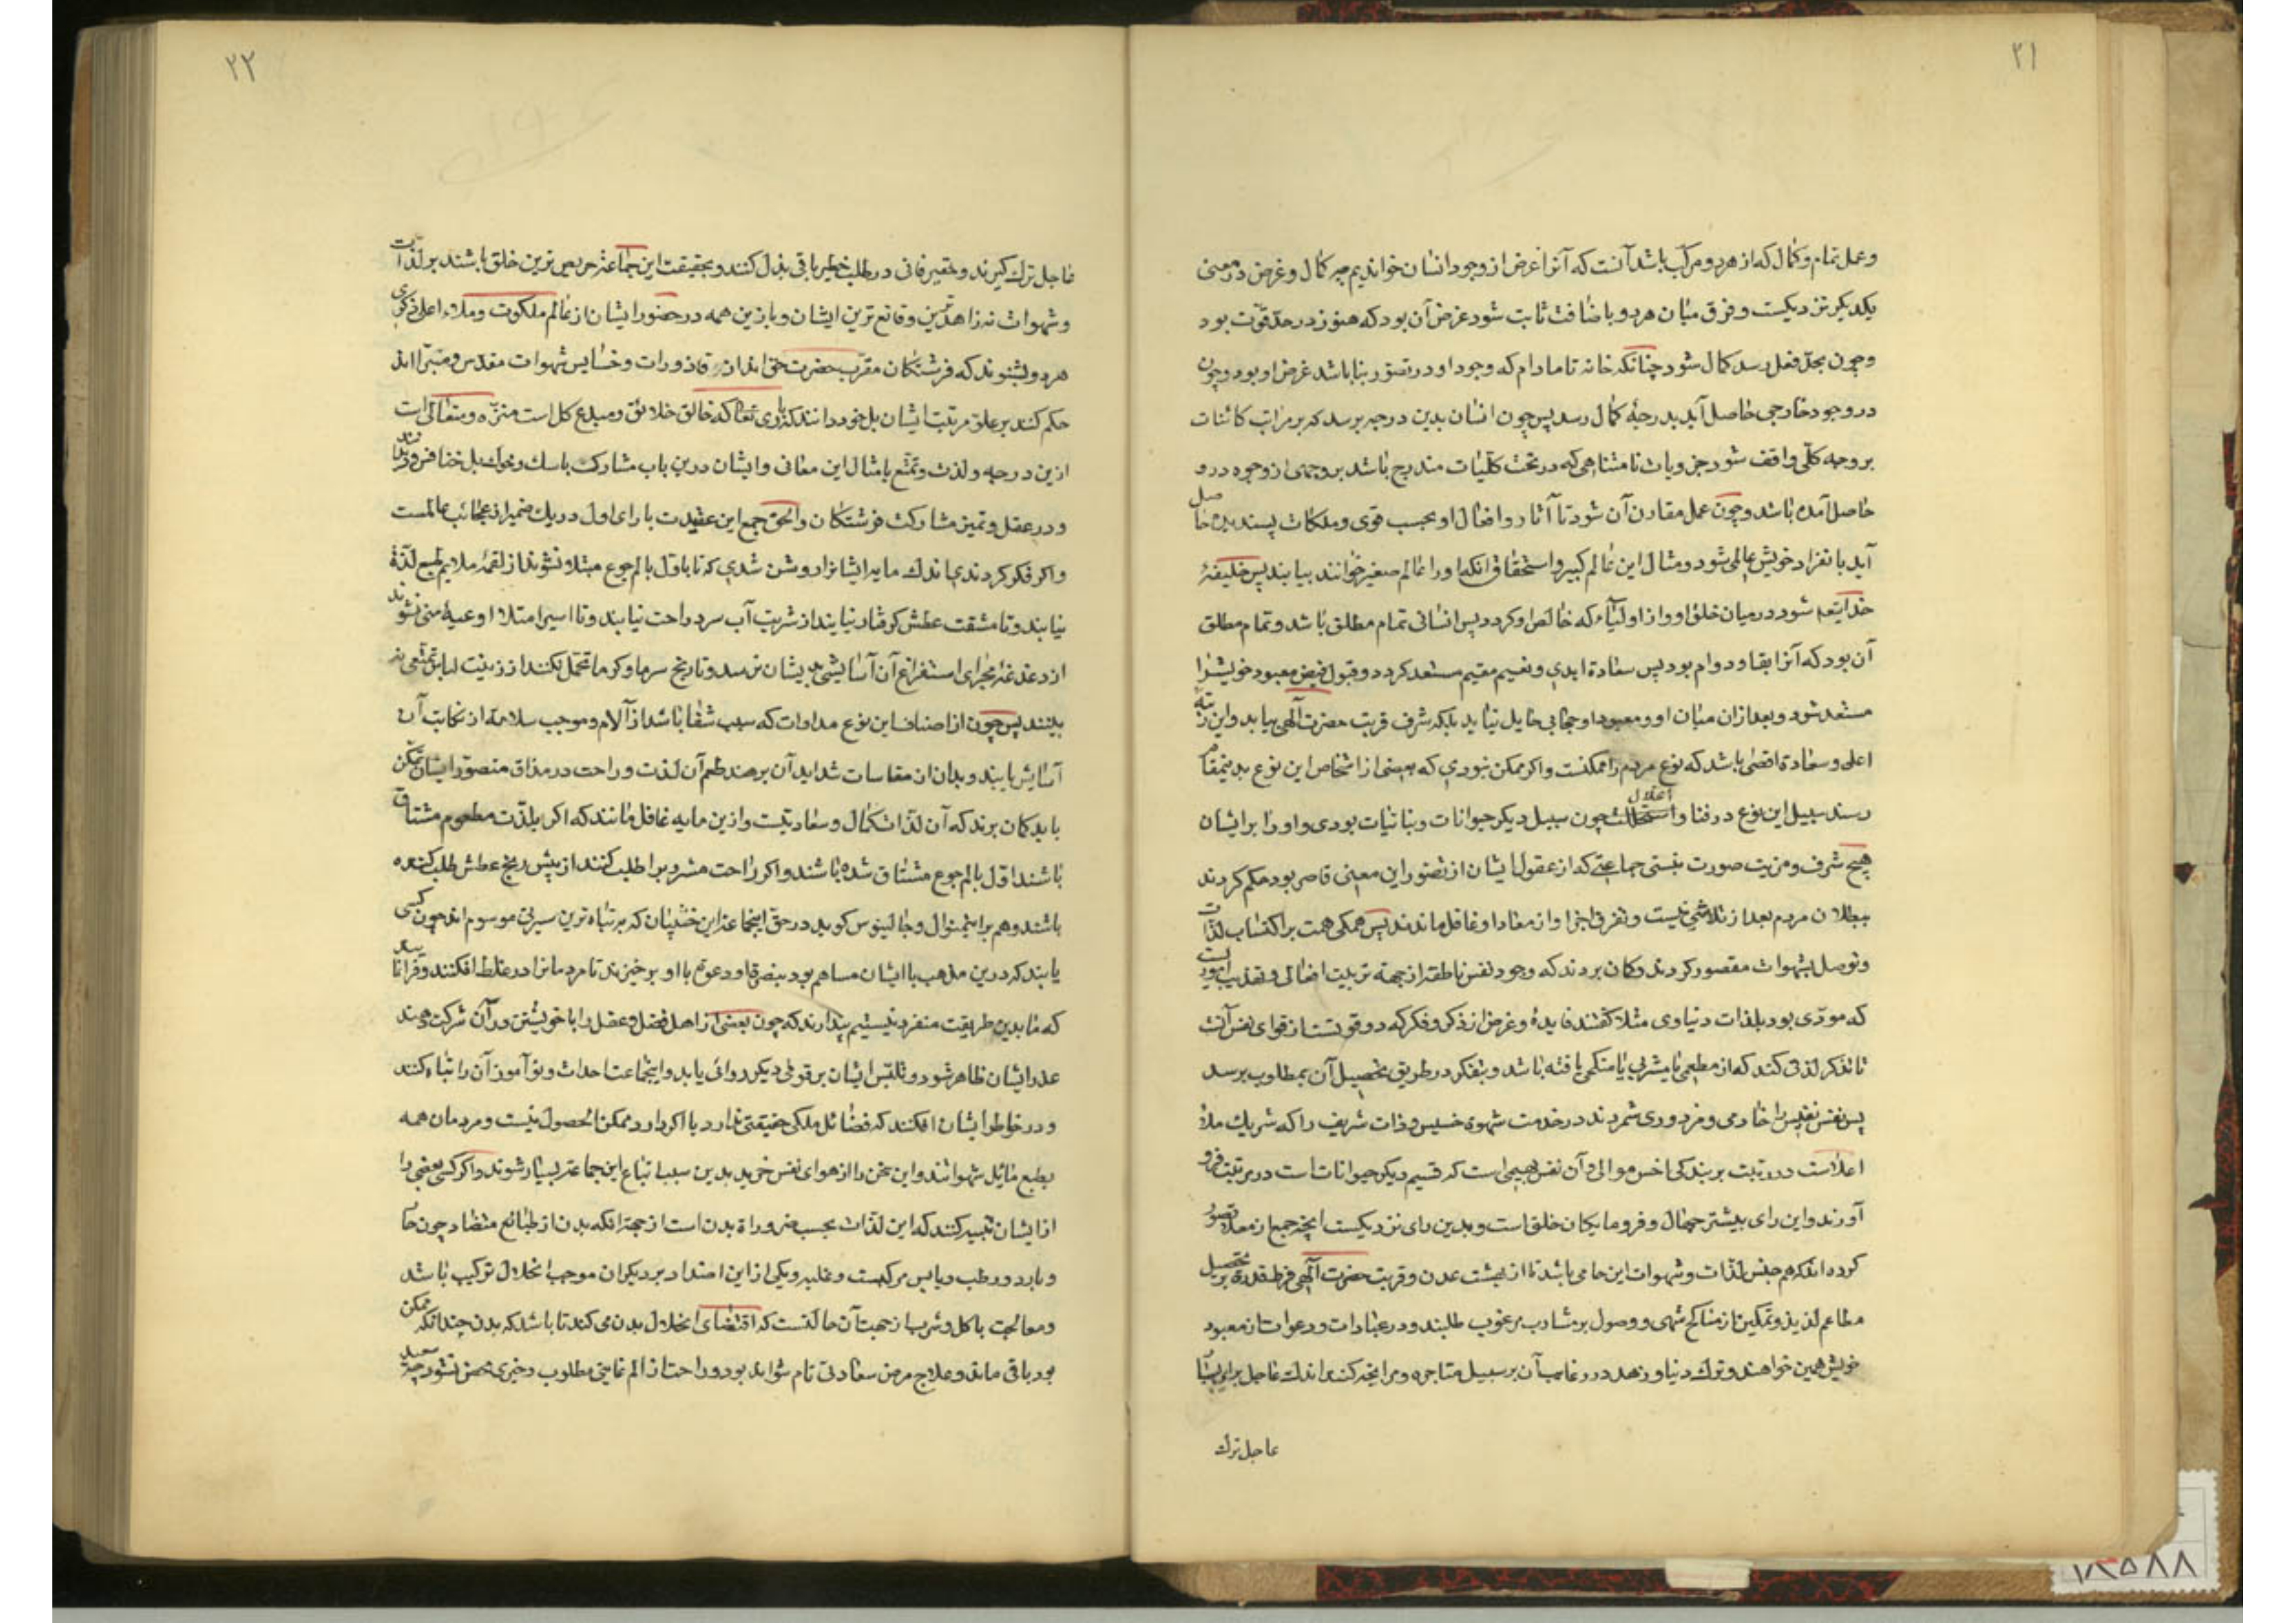 ۲۱
وعمل تمام و کمال که از هر دو مرکب باشد آنست که آنرا غرض از وجود انسان خواندیم چه کمال و غرض در معنی
یکدیگر نزدیکست و فرق میان هر دو باضافت ثابت شود غرض آن بود که هنوز در حد قوت بود
و چون بحد فعل رسد کمال شود چنانکه خانه تا مادام که وجود او در تصور بنا باشد غرض او بود و چون
در وجود خارجی حاصل آید بدرجهٔ کمال رسد پس چون انسان بدین درجه برسد که بر مراتب کائنات
بر وجه کلی واقف شود جزویات نامتناهی که در تحت کلیات مندرج باشد بر وجهی از وجوه درو
حاصل آمده باشد و چون عمل مقارن آن شود تا آثار و افعال او بحسب قوی و ملکات پسندیده حاصل
آید بانفراد خویش عالمی شود و مثال این عالم کبیر و استحقاق آنکه او را عالم صغیر خوانند بیابد پس خلیفهٔ
خدایتعه شود در میان خلق او و از اولیاء که خالص او کردد پس انسانی تمام مطلق باشد و تمام مطلق
آن بود که آنرا بقا و دوام بود پس سعادة ابدی و نعیم مقیم مستعد کردد و قبول فیض معبود خویشرا
مستعد شود و بعد ازان میان او و معبود او حجابی حایل نیاید بلکه شرف قربت حضرت الهی بیابد و این رتبه
اعلی و سعادة اقصی باشد که نوع مردم را ممکنست و اگر ممکن نبودی که بعضی از اشخاص این نوع بدینمقام
رسند سبیل این نوع در فنا و استحالت چون سبیل دیگر حیوانات و نباتیات بودی و او را بر ایشان
هیچ شرف و مزیت صورت نبستی جماعتی که از عقول ایشان از تصور این معنی قاصر بود حکم کردند
ببطلان مردم بعد از تلاشی نیست و تفرق اجزا و از معاد او غافل ماندند پس همکی همت بر اکتساب لذات
و توصل بشهوات مقصور کردند و کمان بردند که وجود نفس ناطقه از جهة تربیت افعالی و تهذیب امور
که مودی بود بلذات دنیاوی مثلا گفتند فایدهٔ و غرض از ذکر و فکر که دو قوتست از قوای نفس آنست
تا تذکر لذتی کند که از مطعمی یا مشربی یا منکحی یافته باشد و بتفکر در طریق تحصیل آن بمطلوب برسد
پس نفس نفیس را خادمی و مزدوری شمردند در خدمت شهوة خسیس و ذات شریف را که شریک ملاٴ
اعلاست در رتبت بر بندکی اخس موالی و آن نفس بهیمی است که قسیم دیگر حیوانات است در مرتبت فرود
آورند و این رای بیشتر جهال و فرومایکان خلق است و بدین رای نزدیکست آنچه جمعی از معاد تصور
کرده اند که هم جنس لذات و شهوات این جا می باشد تا از بهشت عدن و قربت حضرت الهی فرط قدرة بر تحصیل
مطاعم لذیذ و تمکین از مناکح شهی و وصول بر مشارب مرغوب طلبند و در عبادات و دعوات از معبود
خویش همین خواهند و ترک دنیا و زهد در رغایب آن بر سبیل متاجره و مرابحه کنند اندک عاجل برای بسیار
عاجل ترک
۲۲
عاجل ترک گیرند و حقیر فانی در طلب خطیر باقی بذل کنند و بحقیقت این جماعة حریص ترین خلق باشند بر لذات
و شهوات نه زاهدترین و قانع ترین ایشان و با این همه در حضور ایشان از عالم ملکوت و ملاء اعلی ذکری
هر دو بشنوند که فرشتکان مقرب حضرت حق اند از قاذورات و خسایس شهوات مقدس و مبرا اند
حکم کنند بر علو مرتبت ایشان بل خود دانند که باری تعا که خالق خلائق و مبدع کل است منزه و متعالی است
ازین درجه و لذت و تمتع بامثال این معانی و ایشان درین باب مشارک با سک و خوک بل خنافس و دیدان
و در عقل و تمیز مشارکت فرشتکان و الحق جمع این عقیدت با رای اول در یک ضمیر از عجائب عالمست
و اگر فکر کردندی اندک مایه ایشانرا روشن شدی که تا باول بالم جوع مبتلا نشوند از لقمهٔ ملایم طبع لذة
نیابند و تا مشقت عطش کرفتار نیایند از شربت آب سرد راحت نیابند و تا اسیر امتلاٴ اوعیهٔ منی نشوند
از دغدغهٔ مجرای استفراغ آن آسایشی بدیشان نرسد و تا رنج سرما و کرما تحمل نکنند از زینت لباس تمتعی نه
بینند پس چون از اصناف این نوع مداوات که سبب شفا باشد از آلام و موجب سلامة از نکایت آن
آسایش یابند و بدان از مقاسات شداید آن برهند طعم آن لذت و راحت در مذاق متصور ایشان تمکن
یابد کمان برند که آن لذات کمال و سعادتیست و ازین مایه غافل مانند که اگر بلذت مطعوم مشتاق
باشند اول بالم جوع مشتاق شده باشند و اگر راحت مشروب را طلب کنند از پیش رنج عطش طلب کرده
باشند و هم برین منوال و جالینوس کوید در حق اینجماعة این خبیثان که بر تباه ترین سیرتی موسوم اند چون کسی
یابند که درین مذهب با ایشان مساهم بود بنصرة او و دعوت با او برخیزند تا مردمانرا در غلط افکنند و فرا نمایند
که ما بدین طریقت منفرد نیستیم پندارند که چون بعضی از اهل فضل و عقل را با خویشتن در آن شرکت دهند
عذر ایشان ظاهر شود و تلبیس ایشان بر قومی دیگر روائی یابد و اینجماعت احداث و نوآموزان را تباه کنند
و در خاطر ایشان افکنند که فضائل ملکی حقیقتی ندارد یا اگر دارد ممکن الحصول نیست و مردمان همه
بطبع مائل شهواتند و این سخن را از هوای نفس خرید بدین سبب اتباع این جماعة بسیار شوند و اگر کسی بعضی را
از ایشان تنبیه کنند که این لذات بحسب ضرورة بدن است از جهة آنکه بدن از طبائع متضاد چون حار
و بارد و رطب و یابس مرکبست و غلبهٔ یکی از این اضداد بر دیگران موجب انحلال ترکیب باشد
و معالجت باکل و شرب از جهت آن حالتست که اقتضای انحلال بدن می کند تا باشد که بدن چندانکه ممکن
بود باقی ماند و علاج مرض سعادتی تام نتواند بود و راحت از الم غایتی مطلوب و خیری محض نشود چه